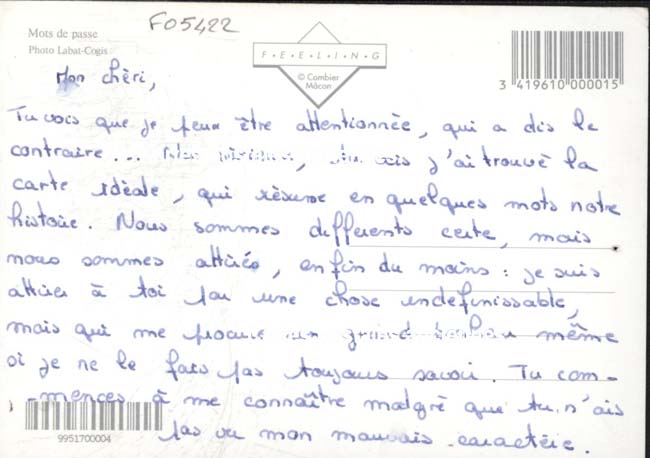 F05422
Mots de passe
Photo Labat-Cogis
F·E·E·L·I·N·G
© Combier
Mâcon
3 419610 000015
Mon chèri,
Tu vois que je peux être attentionnée, qui a dis le
contraire... , tu vois j'ai trouvè la
carte idèale, qui rèsume en quelques mots notre
histoire. Nous sommes diffèrents certe, mais
nous sommes attirés, enfin du moins : je suis
attirer à toi par une chose indefinissable,
mais qui me procure un grand bonheur même
si je ne le fais pas toujours savoir. Tu com-
-mences à me connaître malgrè que tu n'ais
pas vu mon mauvais caractère.
9951700004